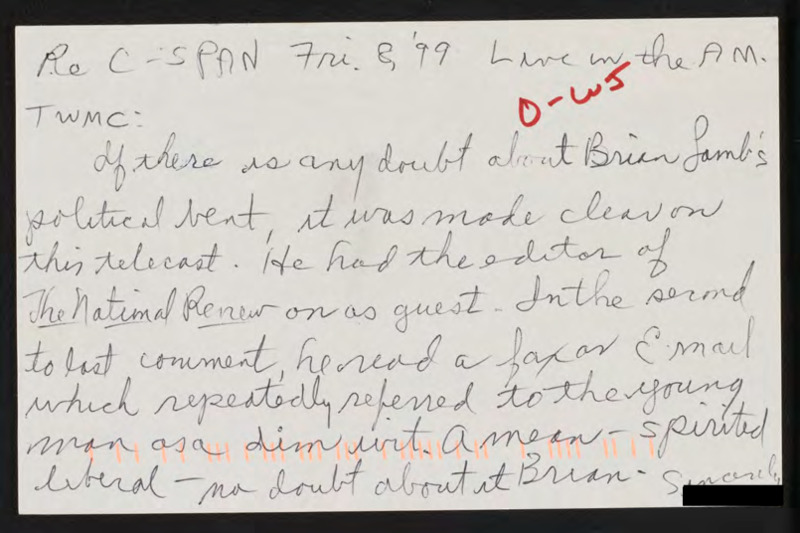 Re C-SPAN Fri. 8, '99 Live in the AM.
O-WJ
TWMC:
If there is any doubt about Brian Lamb's
political bent, it was made clear on
this telecast. He had the editor of
The National Review on as guest. In the second
to last comment, he read a fax or E-mail
which repeatedly referred to the young
man as a dimwit. A mean-spirited
liberal - no doubt about it Brian.
Sincerely